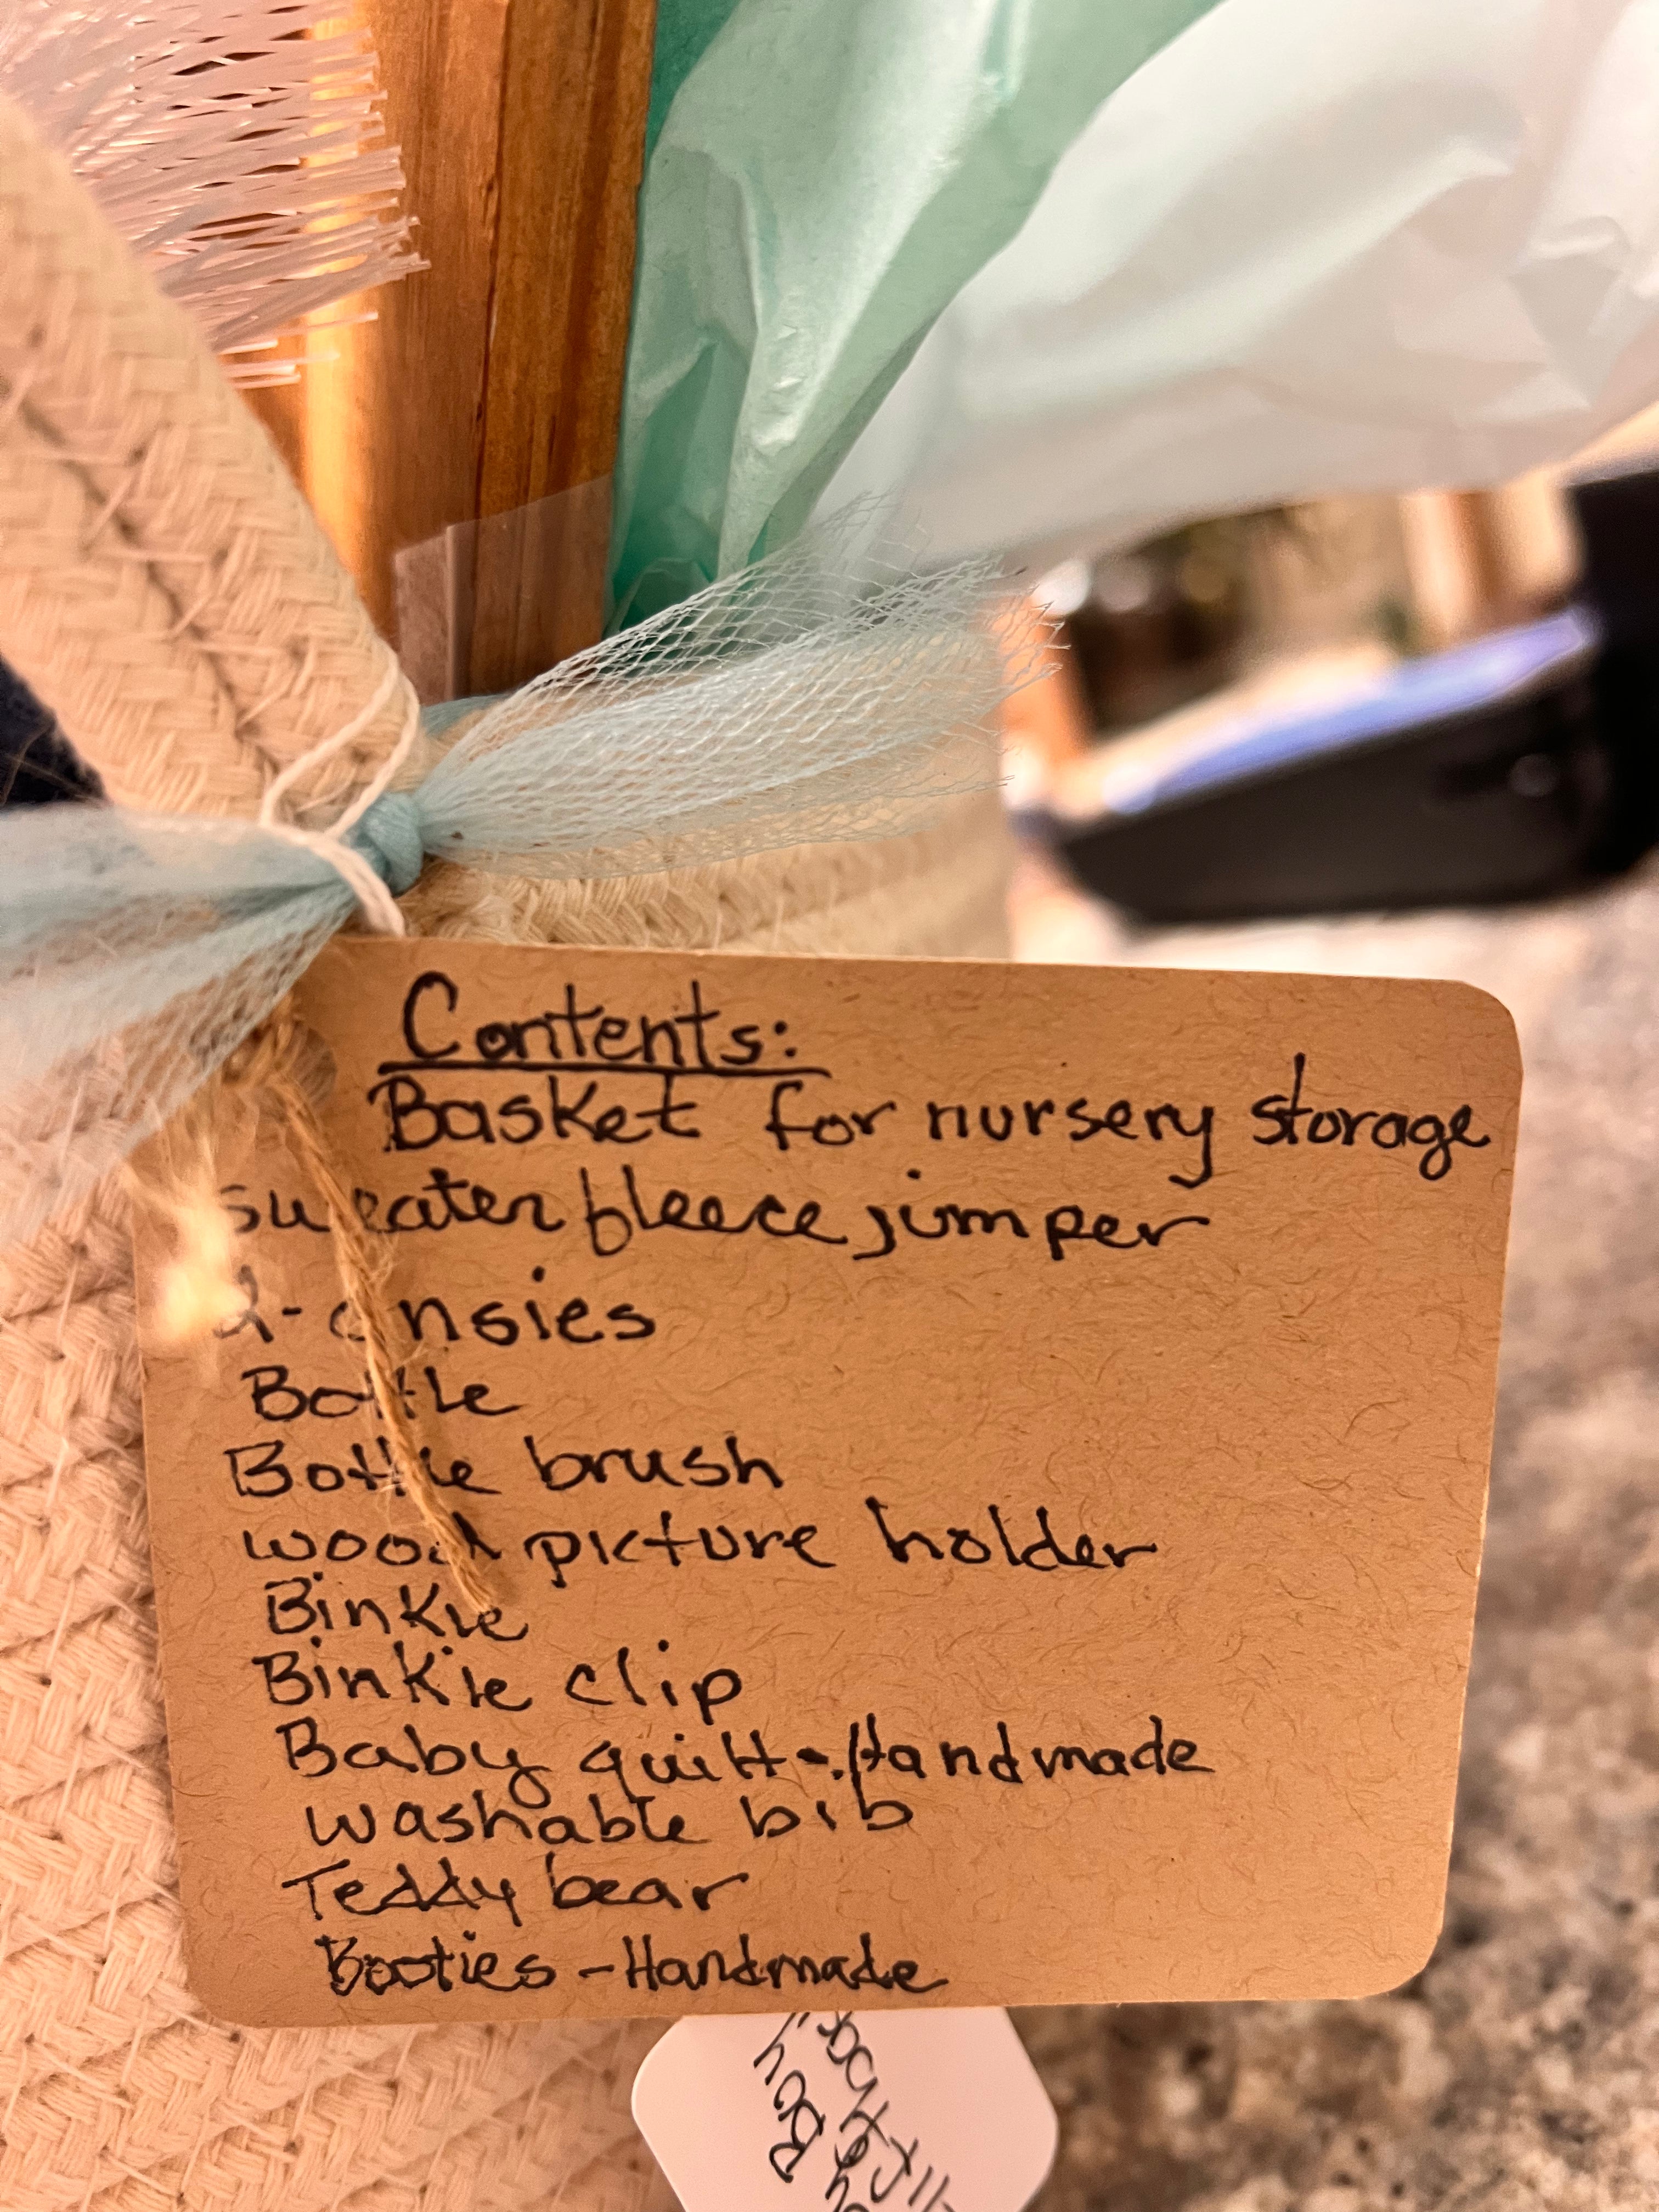 Contents:
Basket for nursery storage
sweater fleece jumper
2-onsies
Bottle
Bottle brush
wood picture holder
Binkie
Binkie clip
Baby quilt - Handmade
washable bib
Teddy bear
Booties - Handmade
Boy